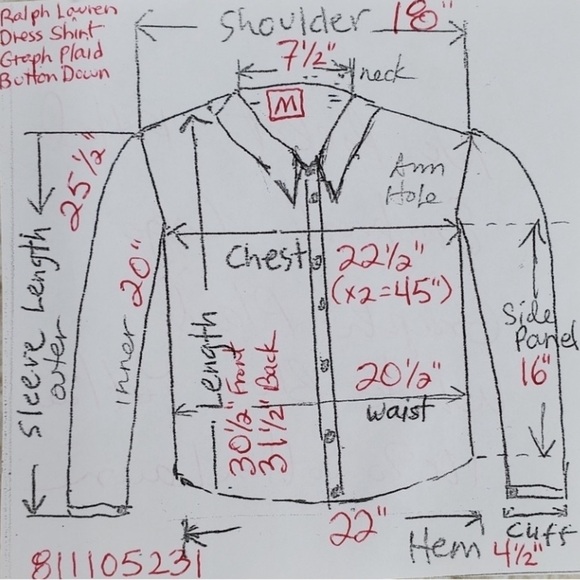 Ralph Lauren
Dress Shirt
Graph Plaid
Button Down
Shoulder 18"
7½"
neck
M
Arm
Hole
25½"
Sleeve Length
outer
inner 20"
Chest
22½"
(x2=45")
Length
30½" Front
31½" Back
Side
Panel
16"
20½"
waist
22"
Hem
Cuff
4½"
811105231